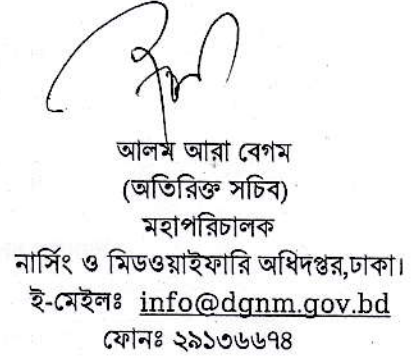 আলম আরা বেগম
(অতিরিক্ত সচিব)
মহাপরিচালক
নার্সিং ও মিডওয়াইফারি অধিদপ্তর,ঢাকা।
ই-মেইলঃ info@dgnm.gov.bd
ফোনঃ ২৯১৩৬৬৭৪